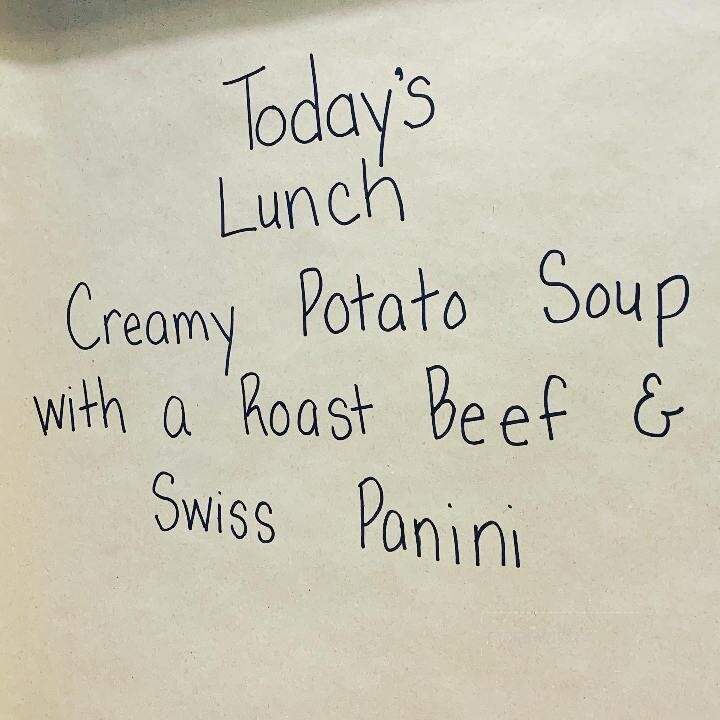 Today's
Lunch
Creamy Potato Soup
with a Roast Beef &
Swiss Panini